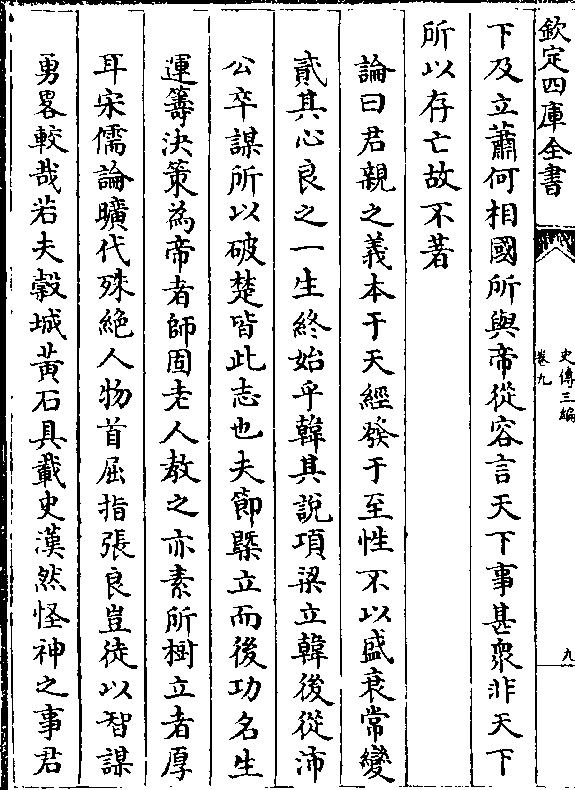 欽定四庫全書
史傳三編
卷九
九
下及立蕭何相國所與帝從容言天下事甚衆非天下
所以存亡故不著
論曰君親之義本于天經發于至性不以盛衰常變
貳其心良之一生終始乎韓其說項梁立韓後從沛
公卒謀所以破楚皆此志也夫節槩立而後功名生
運籌決策為帝者師固老人教之亦素所樹立者厚
耳宋儒論曠代殊絶人物首屈指張良豈徒以智謀
勇畧較哉若夫榖城黄石具載史漢然怪神之事君